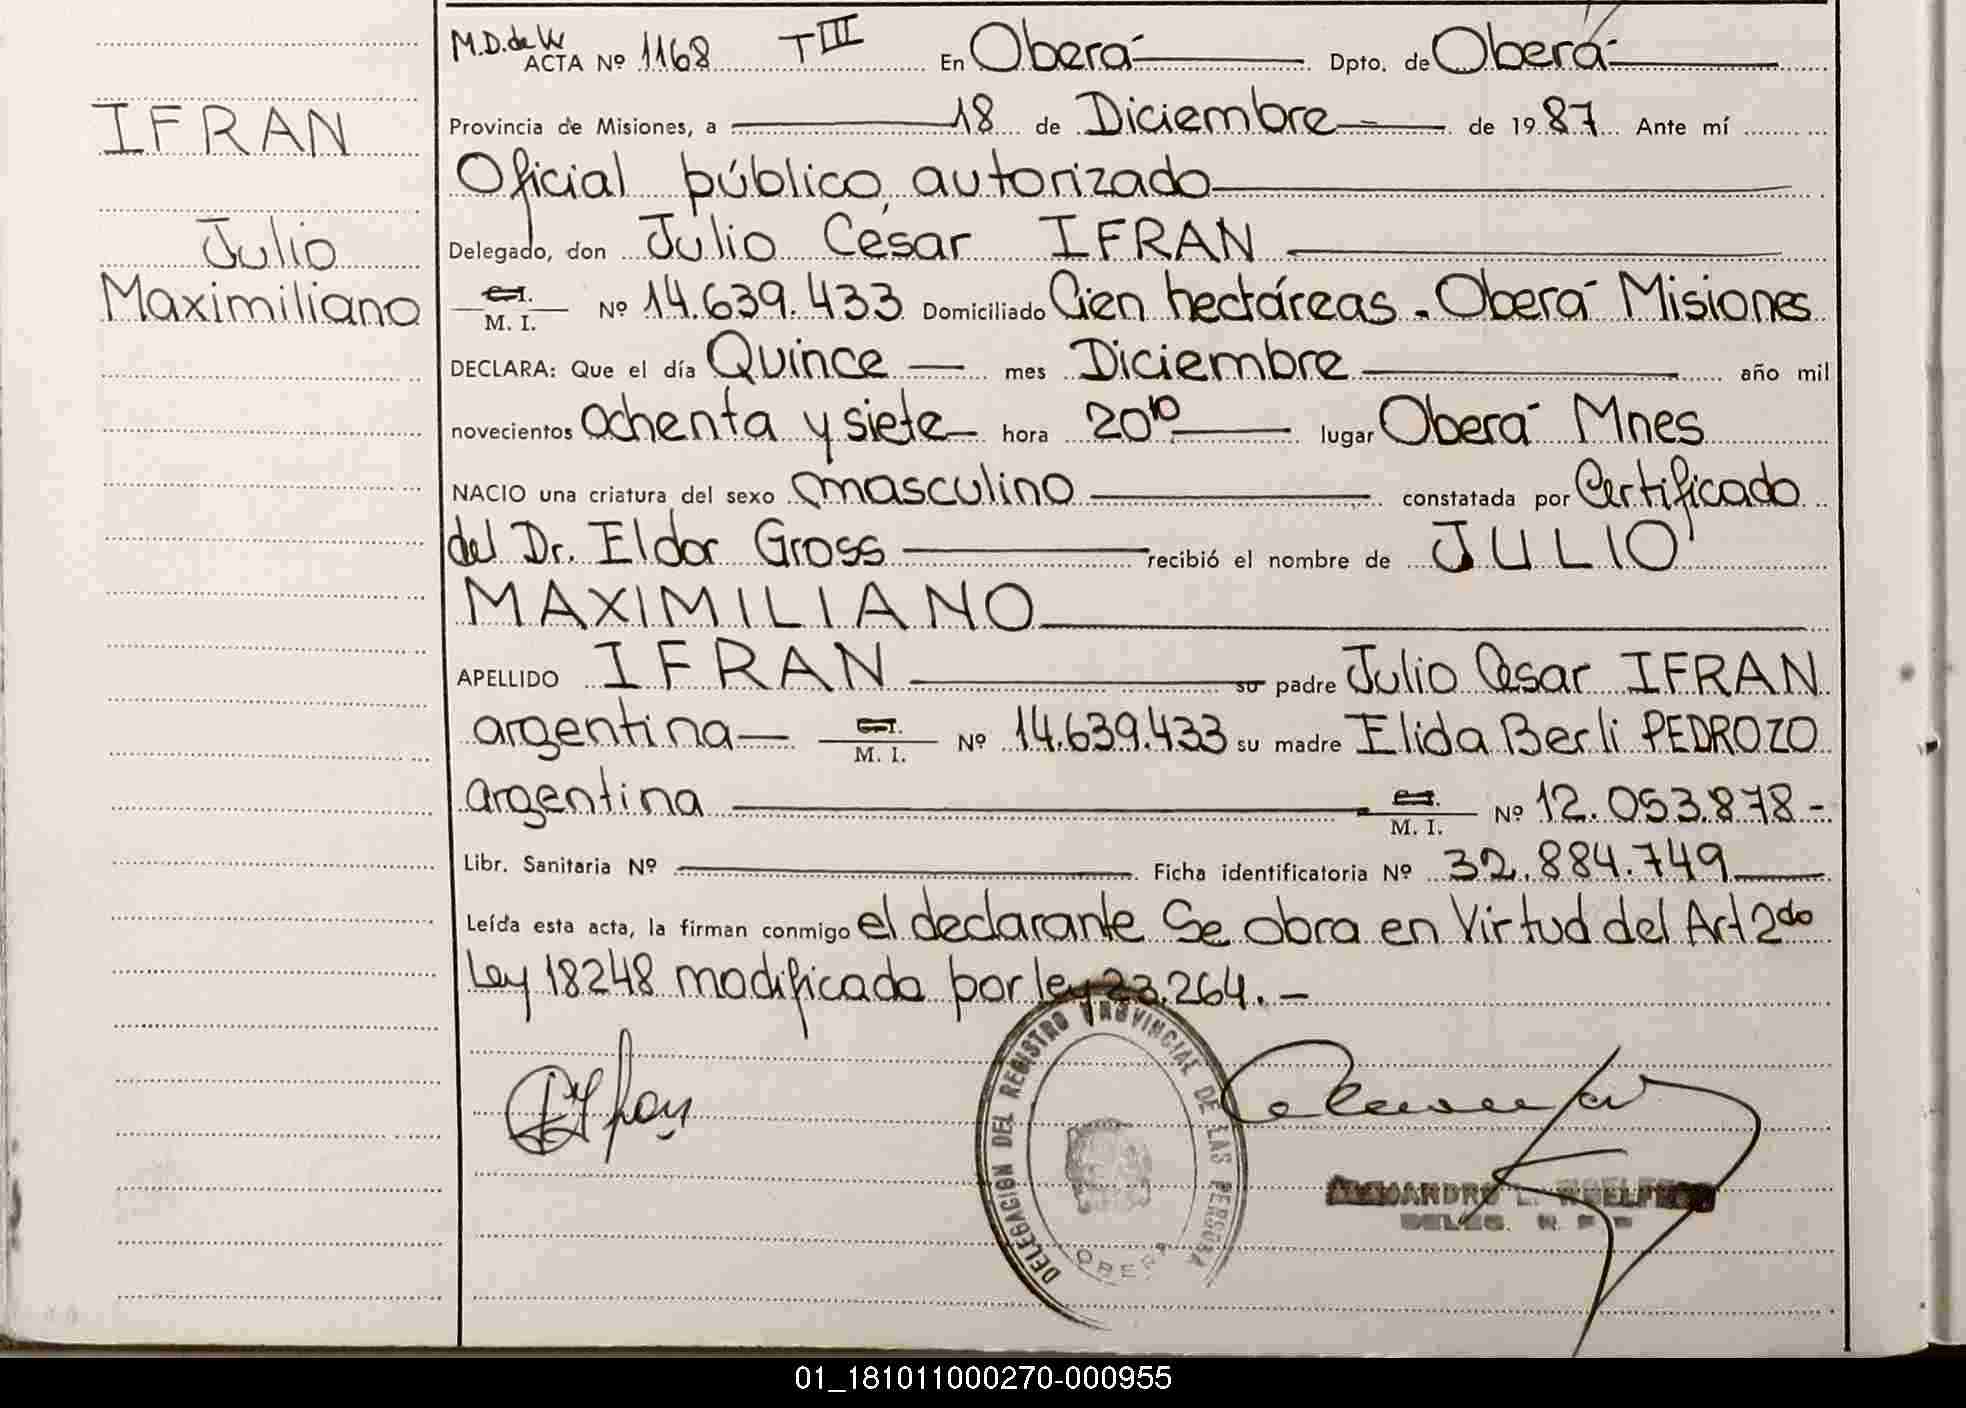 M.D. de W
ACTA Nº 1168 T III En Oberá Dpto. de Oberá
IFRAN
Provincia de Misiones, a 18 de Diciembre de 1987 Ante mí
Oficial público, autorizado
Julio
Delegado, don Julio César IFRAN
Maximiliano
M. I. Nº 14.639.433 Domiciliado Cien hectáreas. Oberá Misiones
DECLARA: Que el día Quince mes Diciembre año mil
novecientos ochenta y siete hora 20 10 lugar Oberá Mnes
NACIO una criatura del sexo masculino constatada por Certificado
del Dr. Eldor Gross recibió el nombre de JULIO
MAXIMILIANO
APELLIDO IFRAN su padre Julio Cesar IFRAN
argentina M. I. Nº 14.639.433 su madre Elida Berli PEDROZO
argentina M. I. Nº 12.053.878-
Libr. Sanitaria Nº Ficha identificatoria Nº 32.884.749
Leída esta acta, la firman conmigo el declarante Se obra en Virtud del Art 2do
Ley 18248 modificada por ley 23.264.-
DELEGACION DEL REGISTRO PROVINCIAL DE LAS PERSONA
OBERA
01_181011000270-000955